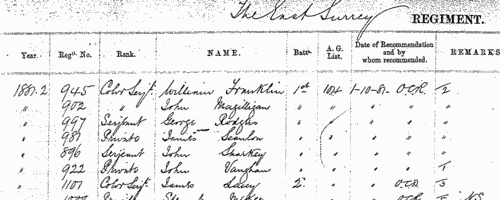 The East Surrey REGIMENT.
Year. Regtl. No. Rank. NAME. Batn. A. G. List. Date of Recommendation and by whom recommended. REMARKS
1881-2 945 Color Serjt. William Franklin 1st 104 1-10-81 O.C.R. 2
" 902 " John Magilligan " " " "
" 997 Serjeant George Rodgers " " " "
" 987 Private James Scanlon " " "
" 896 Serjeant John Sharkey " " "
" 922 Private John Vaughan " " "
" 1101 Color Serjt. James Lacey 2 " O.C.R.